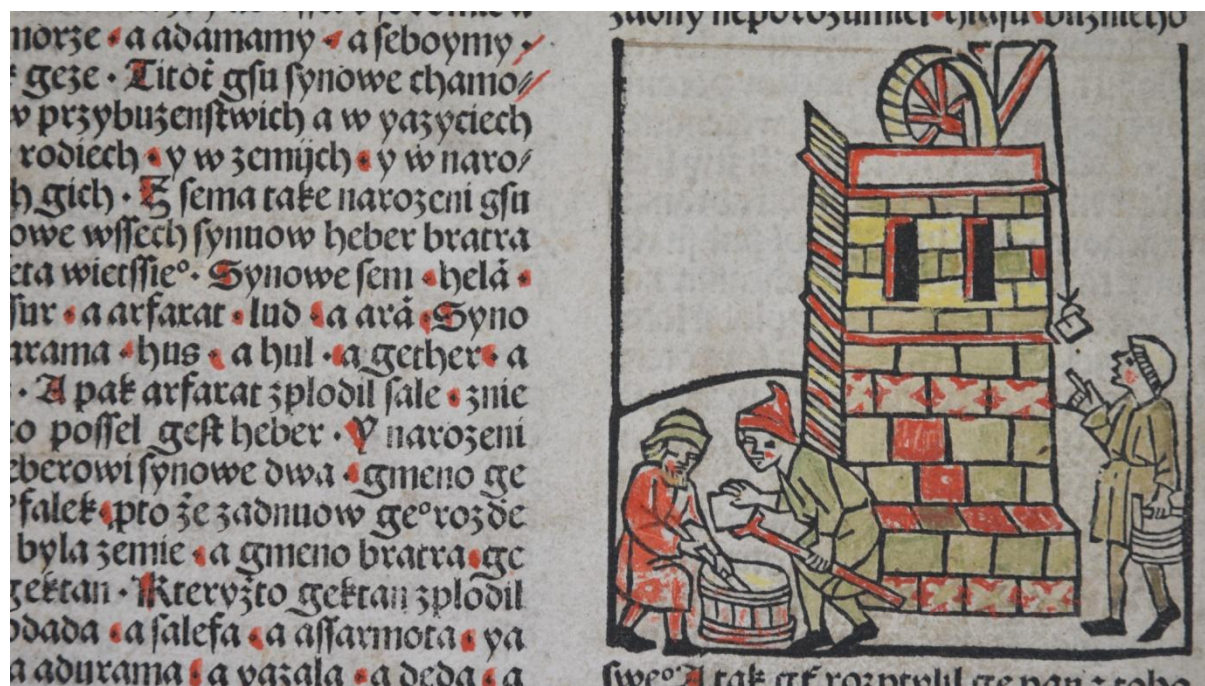 morze · a adamamy · a ſeboymy ·
geze · Titoť gſu ſynowe chamo⸗
w przybuzenſtwich a w yazyciech
rodiech · y w zemijch · y w naro⸗
gich · E ſema take narozeni gſu
owe wſſech ſynuow heber bratra
wietſſieº · Synowe ſem · helā ·
ſſur · a arfaxat · lud · a arā · Syno
arama · hus · a hul · a gether · a
· A pak arfaxat zplodil ſale · znie
to poſſel geſt heber · Y narozeni
eberowi ſynowe dwa · gmeno ge
falek · pto že zadnuow geº rozde
byla zemie · a gmeno bratra · ge
gektan · Kteryžto gektan zplodil
odada · a ſalefa · a aſſarmota · ya
a adurama · a yazala · a deda · a
žadny neporozumiel · hlaſu · bližnieho
ſweº · A tak rozptylil ge pan z toho